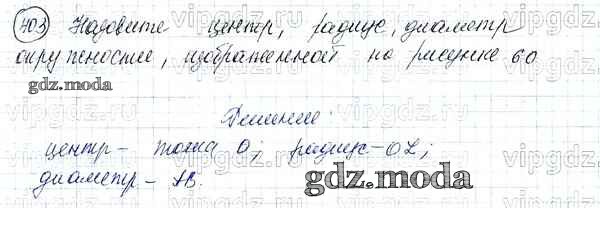 403 Назовите центр, радиус, диаметр
окружностей, изображенной на рисунке 60
gdz.moda
Решение
центр - точка O; радиус - OL;
диаметр - AB.
gdz.moda
vipgdz.ru